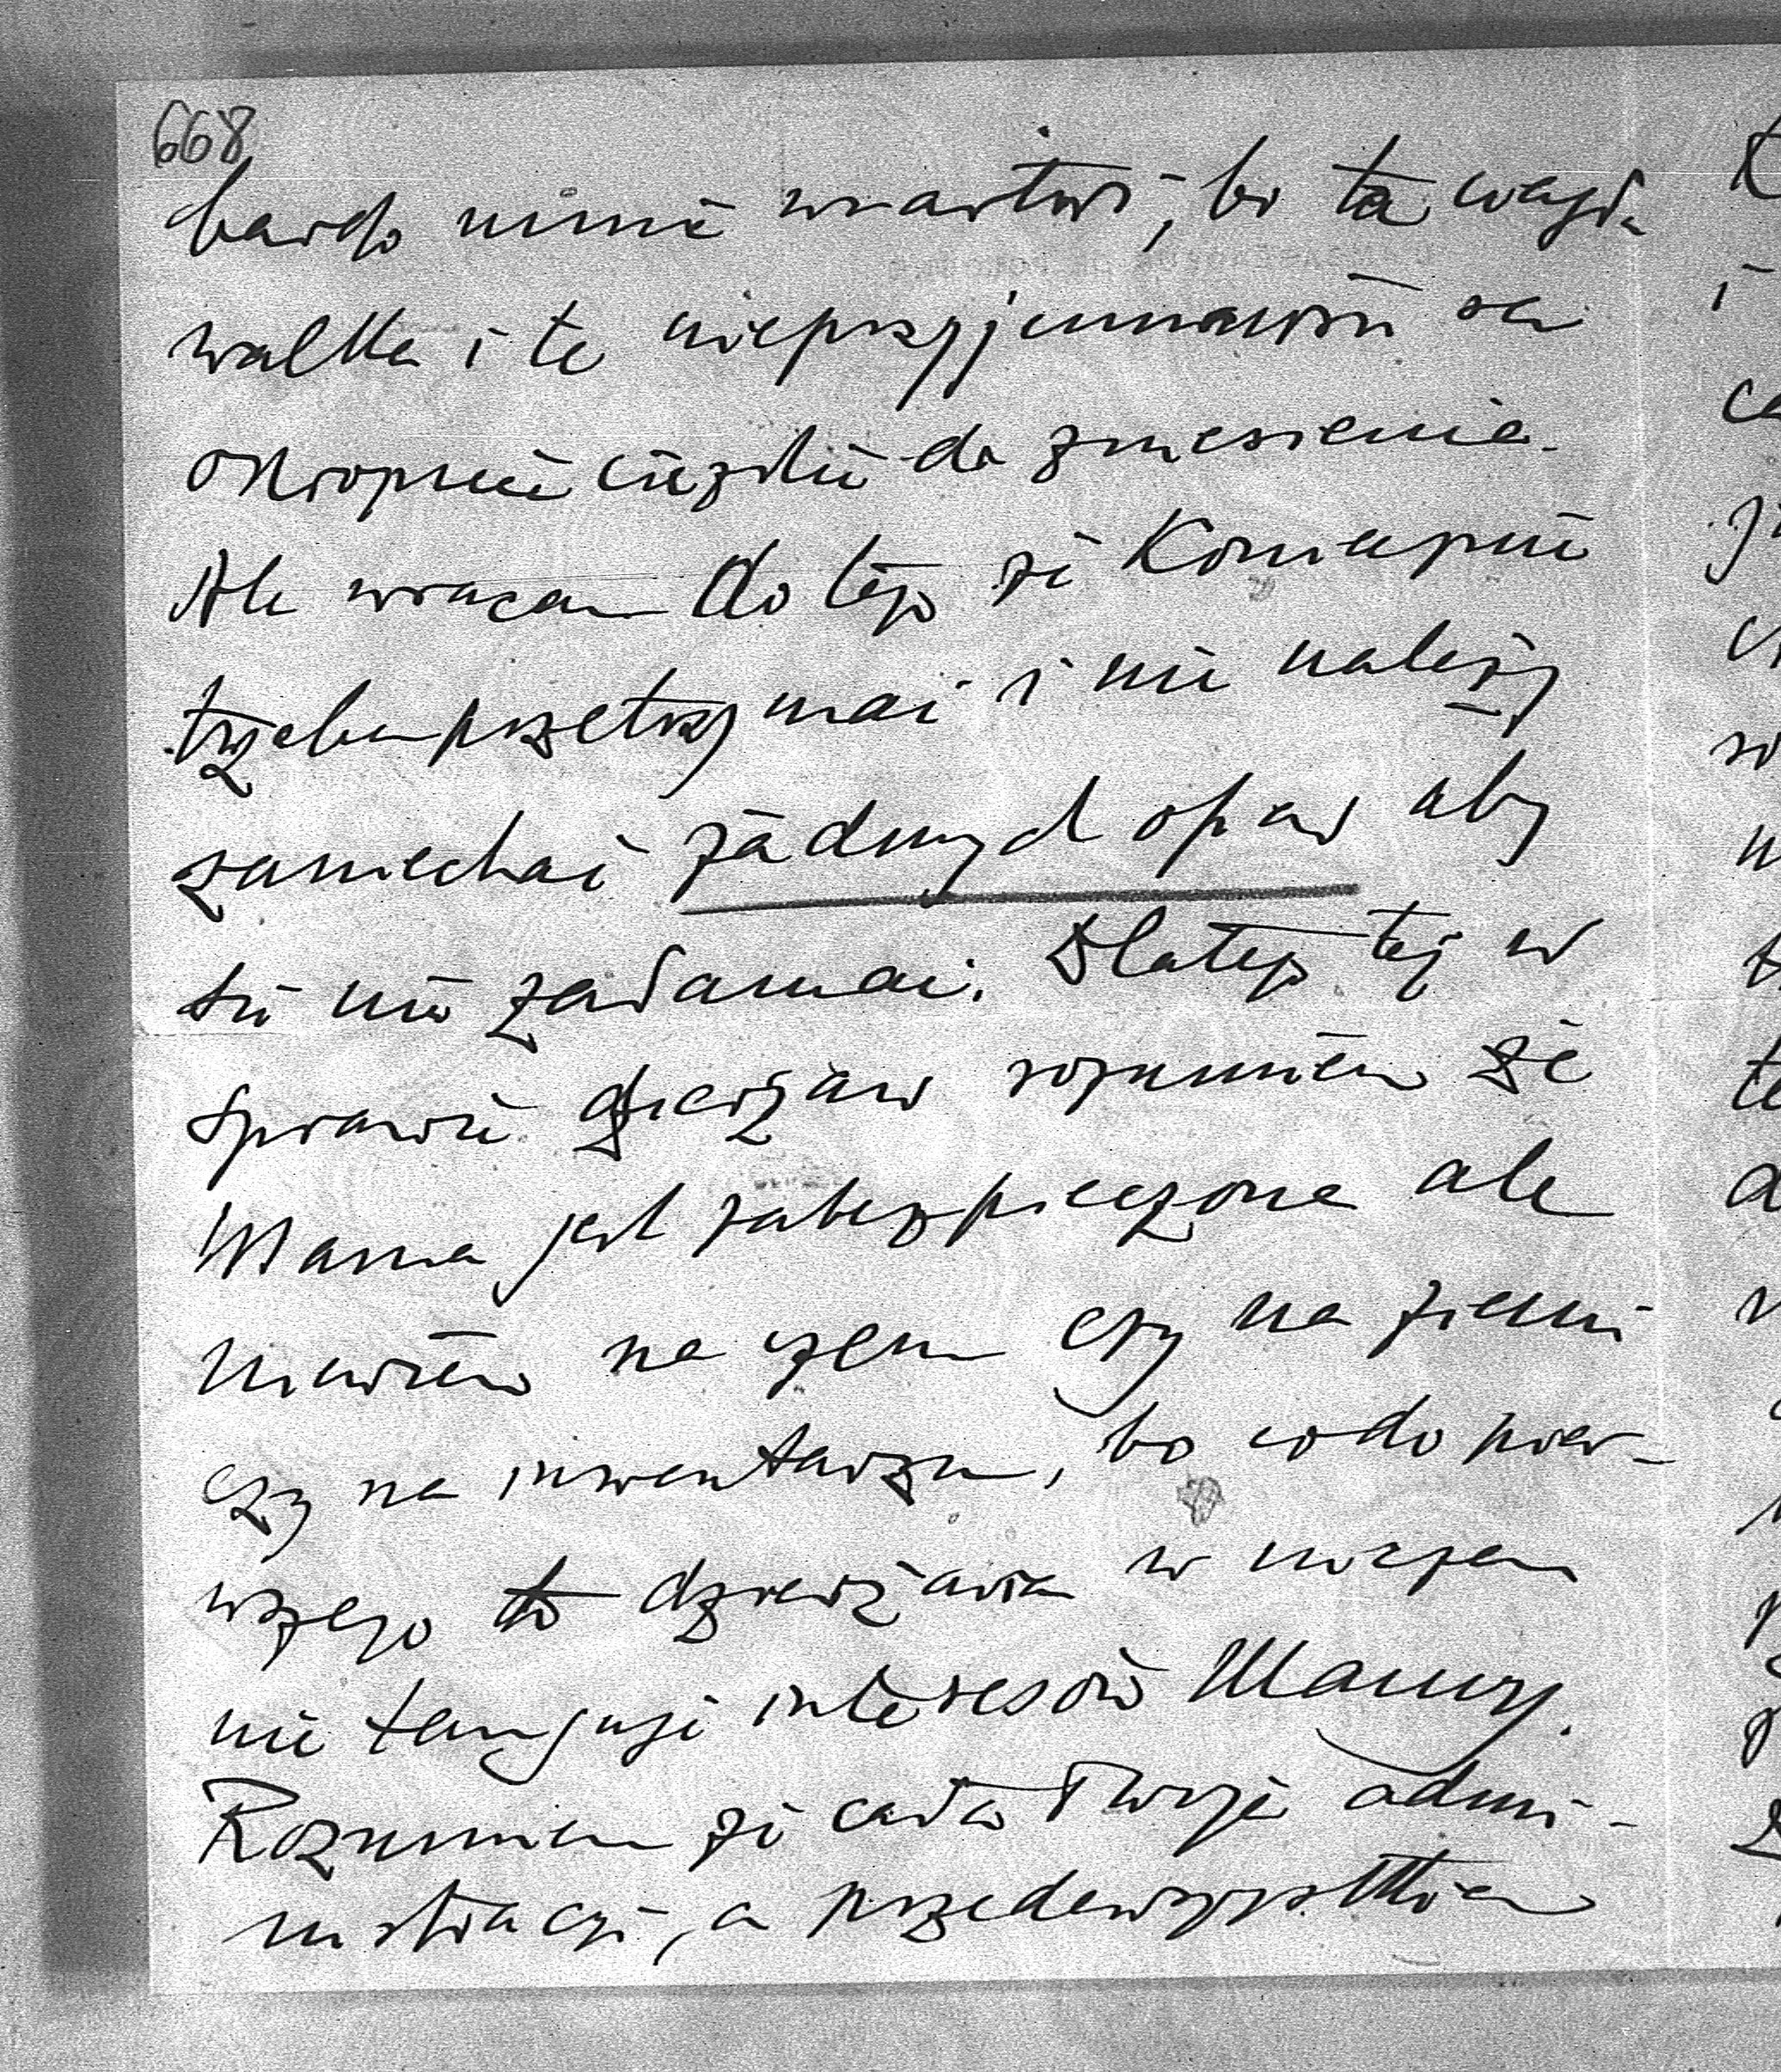 668
bardzo mnie martwi, bo ta ciągła
walka i te nieprzyjemności są
okropnie ciężkie do zniesienia.
Ale wracam do tego że koniecznie
trzeba przetrzymać i nie należy
zaniechać żadnych spraw aby
się nie załamać. Dlatego też w
sprawie dzierżaw rozumiem że
Mama jest zabezpieczona ale
nie wiem na czem czy na ziemi
czy na inwentarzu, bo co do pier-
wszego to dzierżawa w niczem
nie tanguje interesów Mamy.
Rozumiem że cała Twoja admi-
nistracja, a przedewszystkiem